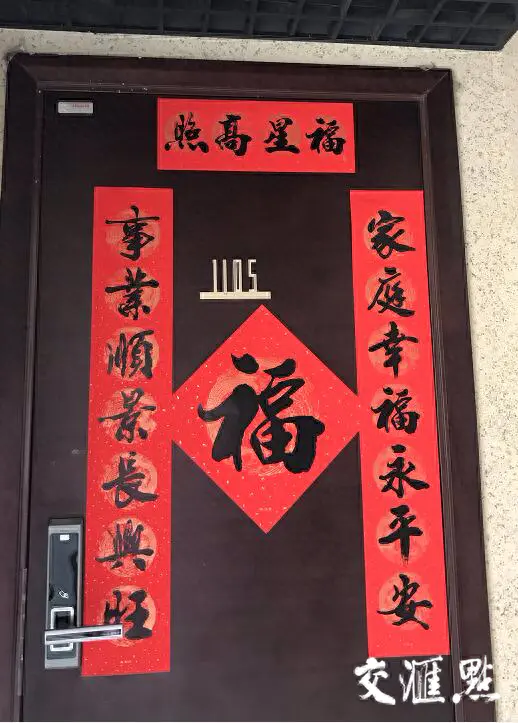 福星高照
家庭幸福永平安
事業順景長興旺
1105
福
交滙點